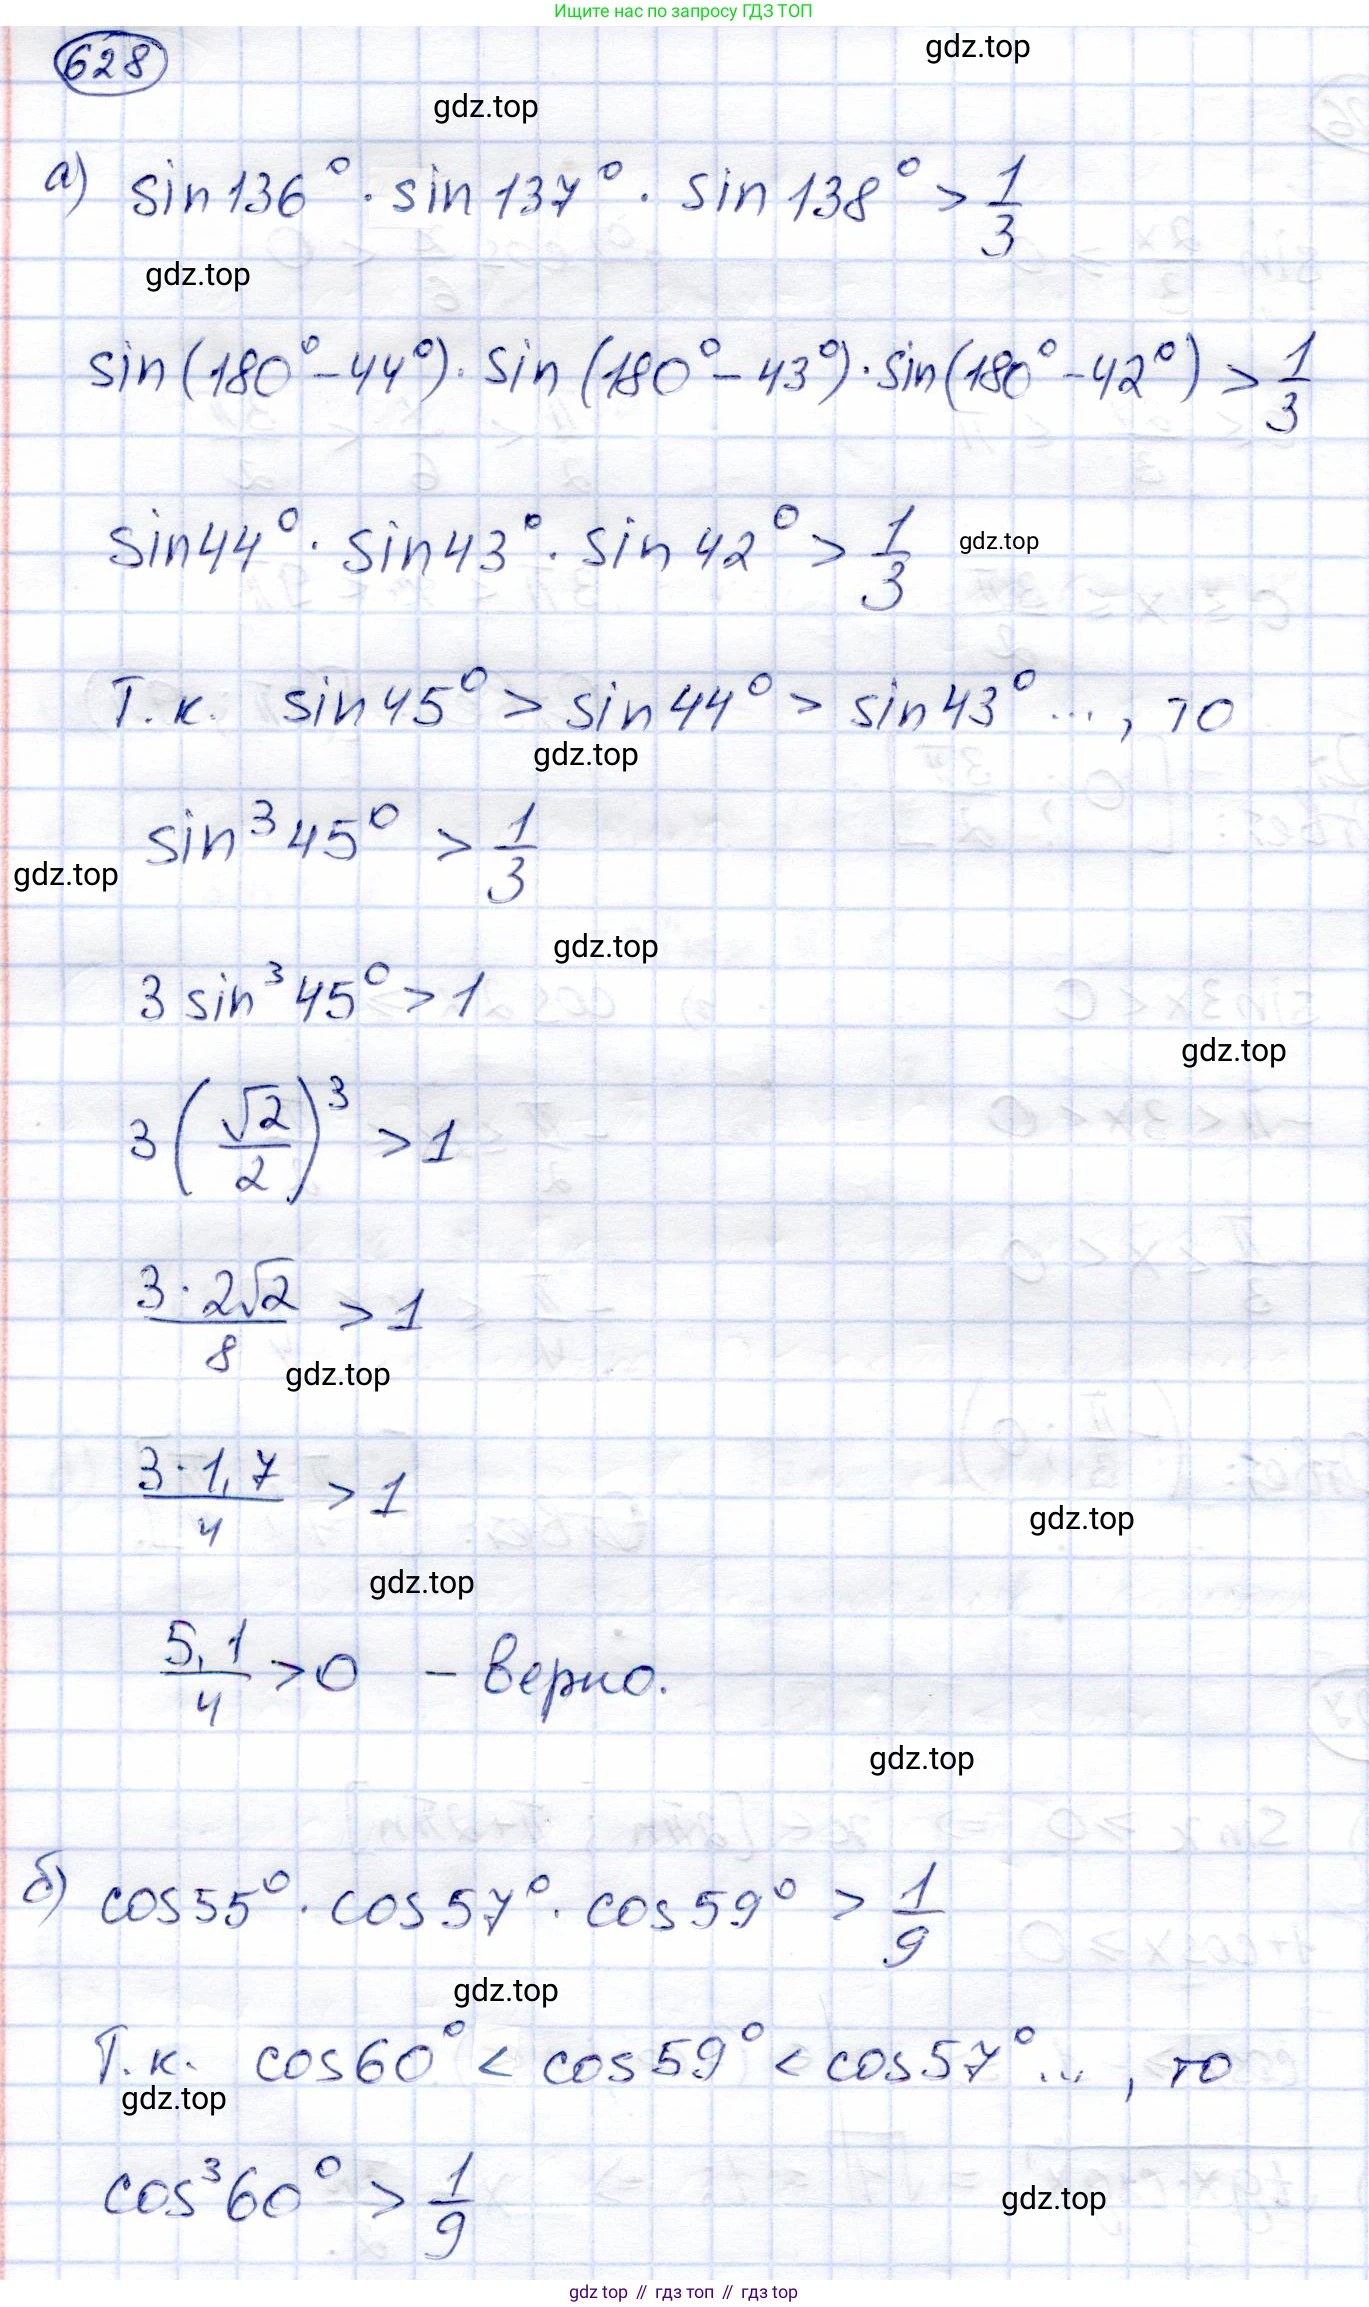 Ищите нас по запросу ГДЗ ТОП
628
gdz.top
gdz.top
а) sin136° · sin137° · sin138° > 1/3
gdz.top
sin(180°-44°) · sin(180°-43°) · sin(180°-42°) > 1/3
sin44° · sin43° · sin42° > 1/3
gdz.top
Т.к. sin45° > sin44° > sin43° ..., то
gdz.top
sin³45° > 1/3
gdz.top
gdz.top
3 sin³45° > 1
gdz.top
3(√2/2)³ > 1
3·2√2/8 > 1
gdz.top
3·1,7/4 > 1
gdz.top
gdz.top
5,1/4 > 0 - верно.
gdz.top
б) cos55° · cos57° · cos59° > 1/9
gdz.top
Т.к. cos60° < cos59° < cos57° ..., то
gdz.top
cos³60° > 1/9
gdz.top
gdz top // гдз топ // гдз top